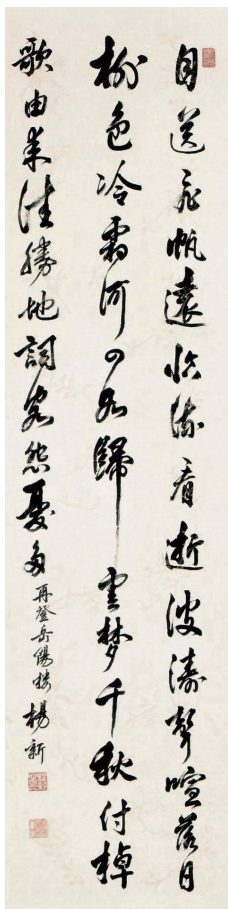 目送飛帆遠臨流看逝波濤聲喧落日
柳色冷霜河四水歸雲梦千秋付棹
歌由来佳勝地詞客怨憂多再登岳陽樓楊新